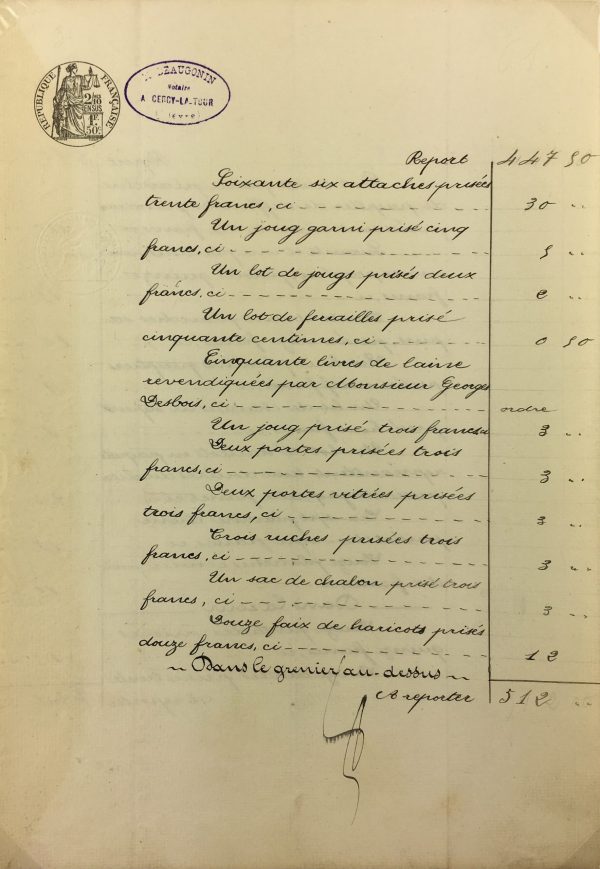 RÉPUBLIQUE FRANÇAISE
2/10 EN SUS
1F. 50c.
BEAUGONIN
Notaire
A CERCY-LA-TOUR
Report 447 50
Soixante six attaches prisées
trente francs, ci 30 "
Un joug garni prisé cinq
francs, ci 5 "
Un lot de jougs prisés deux
francs, ci 2 "
Un lot de feuailles prisé
cinquante centimes, ci 0 50
Cinquante livres de laine
revendiquées par Monsieur Georges
Desbois, ci ordre
Un joug prisé trois francs ci 3 "
Deux portes prisées trois
francs, ci 3 "
Deux portes vitrées prisées
trois francs, ci 3 "
Trois ruches prisées trois
francs, ci 3 "
Un sac de chalon prisé trois
francs, ci 3 "
Douze faix de haricots prisés
douze francs, ci 12
Dans le grenier au-dessus
A reporter 512 "